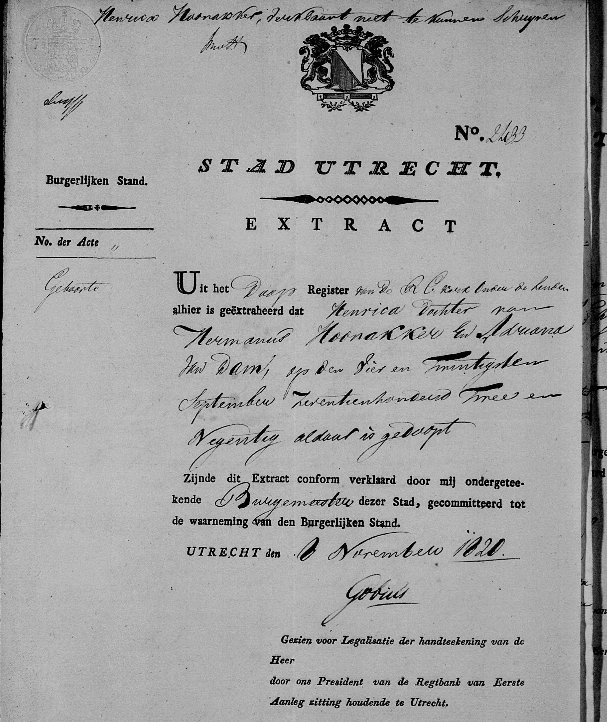 Henrica Hoonakker, verklaart niet te kunnen Schrijven
No. 2433
STAD UTRECHT.
Burgerlijken Stand.
EXTRACT
No. der Acte "
Geboorte
Uit het Doop Register van de R C kerk onder de Linden
alhier is geëxtraheerd dat Henrica dochter van
Hermanus Hoonakker En Adriana
van Dam, op den Vier en twintigsten
September Zeventienhonderd Twee en
Negentig aldaar is gedoopt
Zijnde dit Extract conform verklaard door mij ondergetee-
kende Burgemeester dezer Stad, gecommitteerd tot
de waarneming van den Burgerlijken Stand.
UTRECHT den 8 November 1820.
Gobius
Gezien voor Legalisatie der handteekening van de
Heer
door ons President van de Regtbank van Eerste
Aanleg zitting houdende te Utrecht.